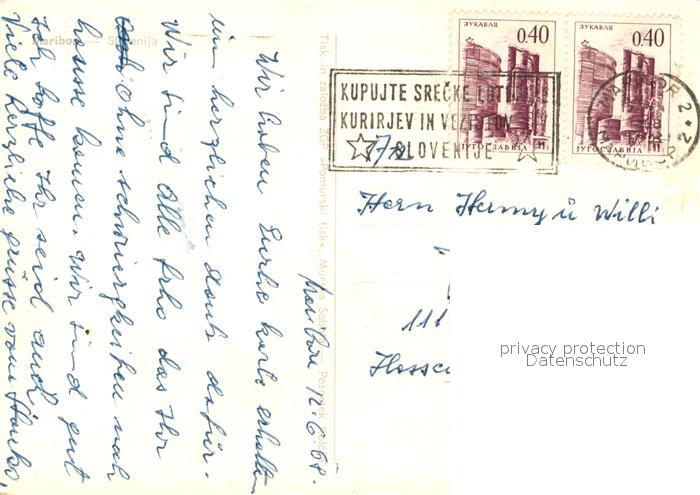 Maribor — Slovenija
Maribor 12.6.68.
Wir haben Eure karte erhalten
ein herzlichen dank dafür.
Wir sind Alle froh das Ihr
Ohne schwiergkeiten nach
hause kamen. Wir sind gut
Ich hoffe Ihr seid auch
Viele herzliche grüsse von
Tisk in založba ZGP »Pomurski tisk«, Murska Sobota
ЛУКАВАЦ
0.40
ЈУГОСЛАВИЈА
ЛУКАВАЦ
0.40
ЈУГОСЛАВИЈА
KUPUJTE SREČKE LOT
KURIRJEV IN VEZISTOV
SLOVENIJE
MARIBOR 2
Hern Hermy ü Willi
111
privacy protection
Datenschutz